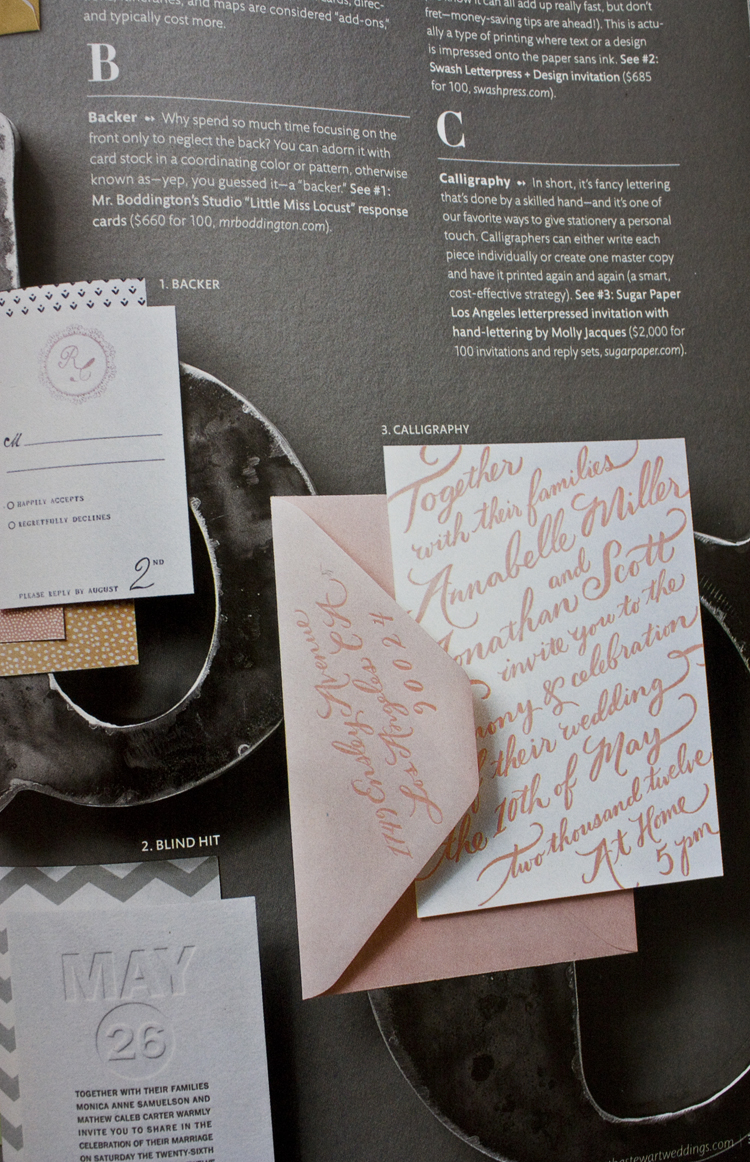 and maps are considered "add-ons,"
and typically cost more.
B
Backer •• Why spend so much time focusing on the
front only to neglect the back? You can adorn it with
card stock in a coordinating color or pattern, otherwise
known as—yep, you guessed it—a "backer." See #1:
Mr. Boddington's Studio "Little Miss Locust" response
cards ($660 for 100, mrboddington.com).
it can all add up really fast, but don't
fret—money-saving tips are ahead!). This is actu-
ally a type of printing where text or a design
is impressed onto the paper sans ink. See #2:
Swash Letterpress + Design invitation ($685
for 100, swashpress.com).
C
Calligraphy •• In short, it's fancy lettering
that's done by a skilled hand—and it's one of
our favorite ways to give stationery a personal
touch. Calligraphers can either write each
piece individually or create one master copy
and have it printed again and again (a smart,
cost-effective strategy). See #3: Sugar Paper
Los Angeles letterpressed invitation with
hand-lettering by Molly Jacques ($2,000 for
100 invitations and reply sets, sugarpaper.com).
1. BACKER
R
M
HAPPILY ACCEPTS
REGRETFULLY DECLINES
PLEASE REPLY BY AUGUST 2ND
3. CALLIGRAPHY
Together
with their families
Annabelle Miller
and
Jonathan Scott
invite you to the
mony & celebration
their wedding
the 10th of May
two thousand twelve
At Home
5 pm
1149 Ensley Avenue
Los Angeles CA
90024
2. BLIND HIT
MAY
26
TOGETHER WITH THEIR FAMILIES
MONICA ANNE SAMUELSON AND
MATHEW CALEB CARTER WARMLY
INVITE YOU TO SHARE IN THE
CELEBRATION OF THEIR MARRIAGE
ON SATURDAY THE TWENTY-SIXTH
hastewartweddings.com